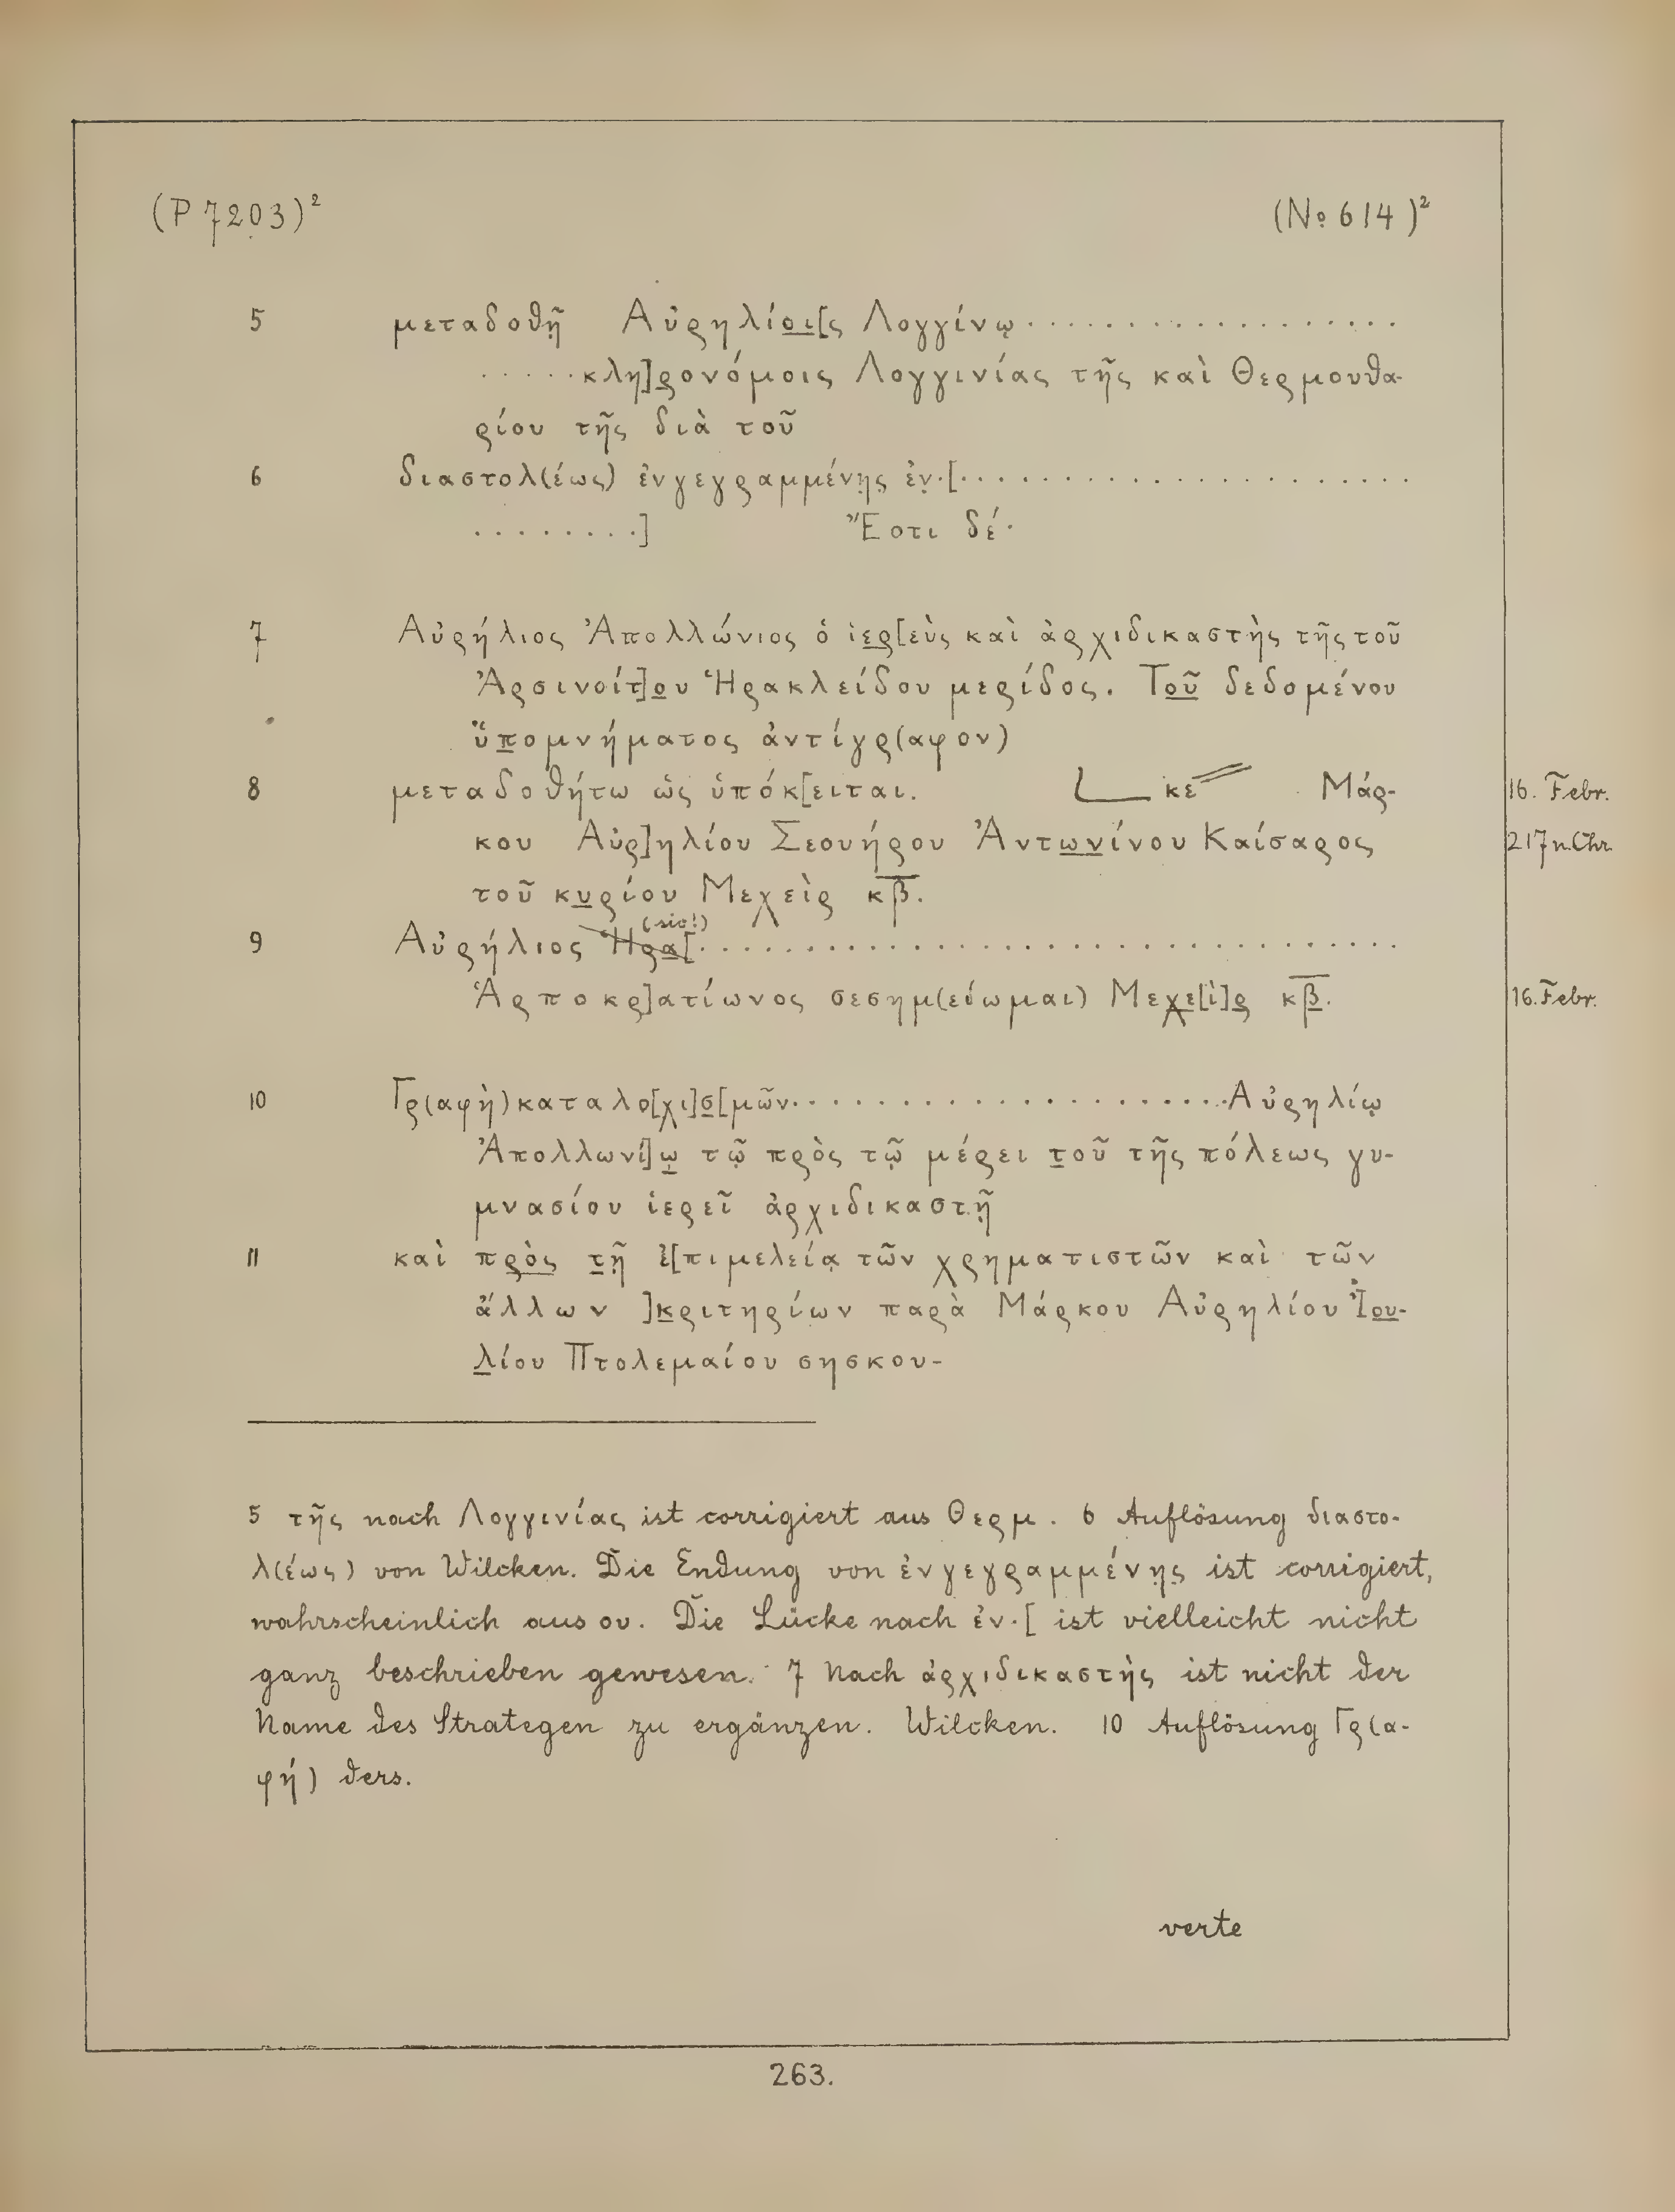 (P 7203)² (No 614)²
5 μεταδοθῇ Αὐρηλίο̲ι̲[ς Λογγίνῳ..................
.....κλη]ρ̲ονόμοις Λογγινίας τῆς καὶ Θερμουθα-
ρίου τῆς διὰ τοῦ
6 διαστολ(έως) ἐνγεγραμμένη̣ς̣ ἐν̣.[......................
........] Ἔστι δέ·
7 Αὐρήλιος Ἀπολλώνιος ὁ ἱε̲ρ̲[εὺς καὶ ἀρχιδικαστὴς τῆς τοῦ
Ἀρσινοίτ]ο̲υ Ἡρακλείδου μερίδος. Το̲ῦ̲ δεδομένου
ὑ̈π̲ομνήματος ἀντίγρ(αφον)
8 μεταδοθήτω ὡς ὑπόκ[ειται. L κε// Μάρ- 16. Febr.
κου Αὐρ]ηλίου Σεουήρου Ἀντω̲ν̲ίνου Καίσαρος 217 n. Chr.
τοῦ κυ̲ρίου Μεχεὶρ κβ̅.
(sic!)
9 Αὐρήλιος Ἡρα̲[..................................
Ἁρποκρ]ατίωνος σεσημ(είωμαι) Μεχ̲ε̲[ὶ]ρ̲ κβ̲̅. 16. Febr.
10 Γρ(αφὴ) καταλο[χι]σ̲[μῶν.....................Αὐρηλίῳ
Ἀπολλωνί]ῳ̲ τῷ πρὸς τῷ μέρει τ̲οῦ τῆς πόλεως γυ-
μνασίου ἱερεῖ ἀρχιδικαστῇ
11 καὶ πρ̲ὸ̲ς̲ τ̲ῇ ἐ[πιμελείᾳ τῶν χρηματιστῶν καὶ τῶν
ἄλλων ]κ̲ριτηρίων παρὰ Μάρκου Αὐρηλίου Ἰο̲υ̲-
λ̲ίου Πτολεμαίου σησκου-
5 τῆς nach Λογγινίας ist corrigiert aus Θερμ. 6 Auflösung διαστο-
λ(έως) von Wilcken. Die Endung von ἐνγεγραμμένη̣ς̣ ist corrigiert,
wahrscheinlich aus ου. Die Lücke nach ἐν.[ ist vielleicht nicht
ganz beschrieben gewesen. 7 Nach ἀρχιδικαστὴς ist nicht der
Name des Strategen zu ergänzen. Wilcken. 10 Auflösung Γρ(α-
φή) ders.
verte
263.